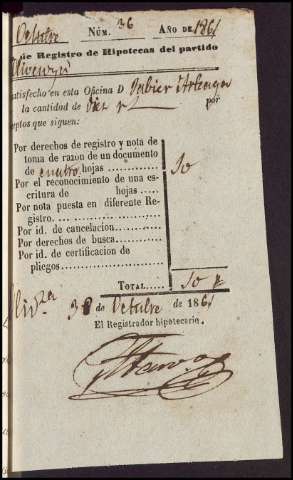 Octubre NÚM. 36 AÑO DE 1861
de Registro de Hipotecas del partido
Olivenza
satisfecho en esta Oficina D. Jabier
la cantidad de diez r por
eptos que siguen:
Por derechos de registro y nota de
toma de razon de un documento
de cuatro hojas ........ 10
Por el reconocimiento de una es-
critura de hojas .....
Por nota puesta en diferente Re-
gistro. ..................
Por id. de cancelacion. ........
Por derechos de busca. ........
Por id. de certificacion de
pliegos. .................
TOTAL..... 10 r
30 de Octubre de 1861
El Registrador hipotecario.